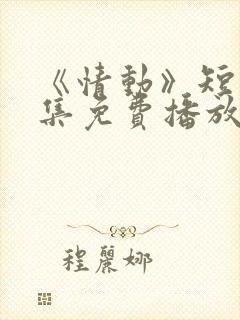 《情動》短
集免費播放
程麗娜